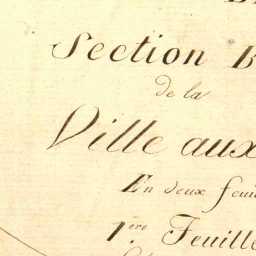 Section B
de la
Ville aux
En deux feui
1.ere Feuille